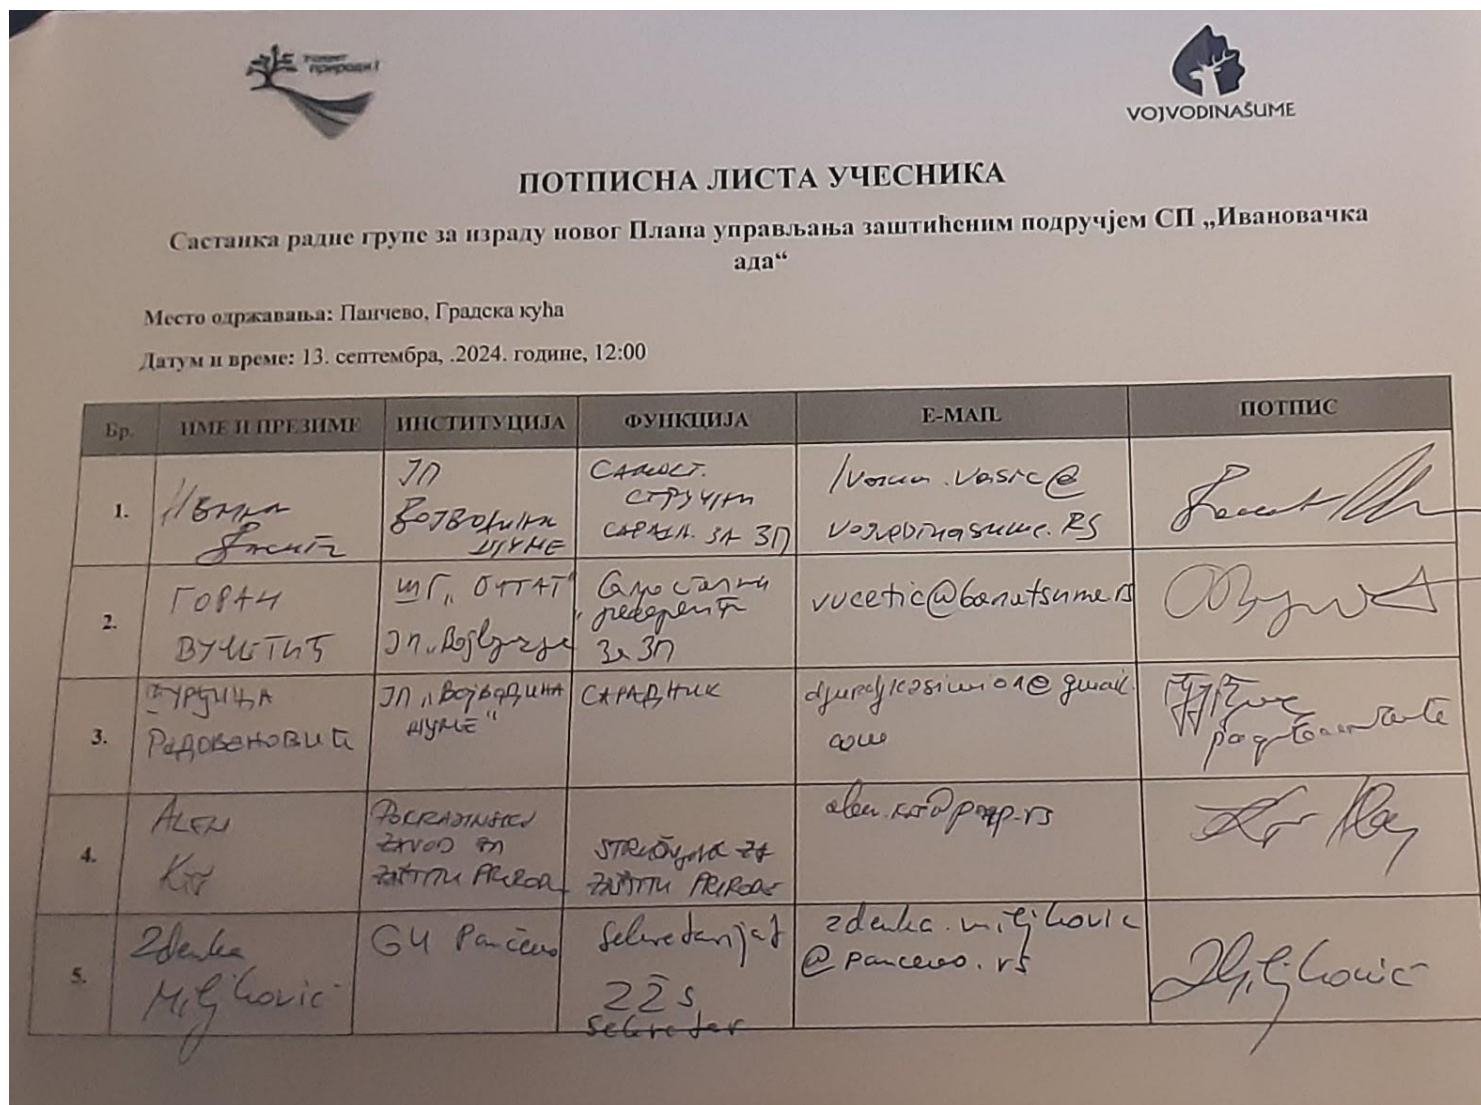 ПОКРЕТ
ПРИРОДИ!
VOJVODINAŠUME
ПОТПИСНА ЛИСТА УЧЕСНИКА
Састанка радне групе за израду новог Плана управљања заштићеним подручјем СП „Ивановачка
ада“
Место одржавања: Панчево, Градска кућа
Датум и време: 13. септембра, .2024. године, 12:00
Бр. ИМЕ И ПРЕЗИМЕ ИНСТИТУЦИЈА ФУНКЦИЈА Е-МАИЛ ПОТПИС
1.
Ивана
Васић
ЈП
Војводина
шуме
САМОСТ.
СТРУЧНИ
САРАД. ЗА ЗП
ivana.vasic@
vojvodinasume.rs
2.
ГОРАН
ВУЧЕТИЋ
ШГ
ЈП
Самостални
референт
За ЗП
vucetic@banatsume.rs
3.
ЂУРЂИЦА
РАДОВАНОВИЋ
ЈП „ВОЈВОДИНА
ШУМЕ“
САРАДНИК
@gmail.
com
4.
ALEN
Kiš
POKRAJINSKI
ZAVOD ZA
ZAŠTITU PRIRODE
ZA
ZAŠTITU PRIRODE
5.
Zdenka
Miljković
GU Pančevo
Sekretarijat
ZŽS
sekretar
zdenka.miljkovic
@pancevo.rs
Miljković